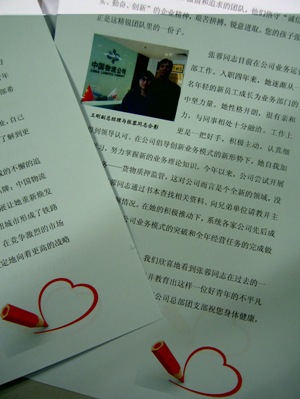 的企业精神，艰苦拼搏，锐意进取。您的孩子张
正是这精锐团队里的一份子。
中国物流公司
王畅副总经理与张蓉同志合影
张蓉同志目前在公司业务运
部工作。入职四年来，她逐渐从一
名年轻的新员工成长为业务部门的
中坚力量。她性格开朗，很有亲和
力，与同事相处十分融洽。工作上
更是一把好手，积极主动、认真负
得到领导认可。在公司倡导创新业务模式的新形势下，她自我加
习，努力掌握新的业务理论知识。今年以来，公司尝试开展
货物质押监管，这对公司而言是个全新的领域，没
蓉同志通过书本查找相关资料、向兄弟单位请教并主
情况。在她的积极推动下，系统各家公司先后成
公司业务模式的突破和全年经营任务的完成做
我们欣喜地看到张蓉同志在过去的一
并教育出这样一位好青年的不平凡
公司总部团支部祝您身体健康，
自己，
了解到更
的不懈的追
品牌，中国物流
展让她重新焕发
市城市形成了铁路
在竞争激烈的市场
定地向着更高的战略